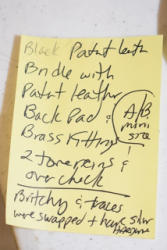 Black Patent leath
Bridle with
Patent leather
Back Pad &
Brass Kitting
A/B
mini
size
2 tone reins &
over check
Britchy & traces
were swapped + have silver